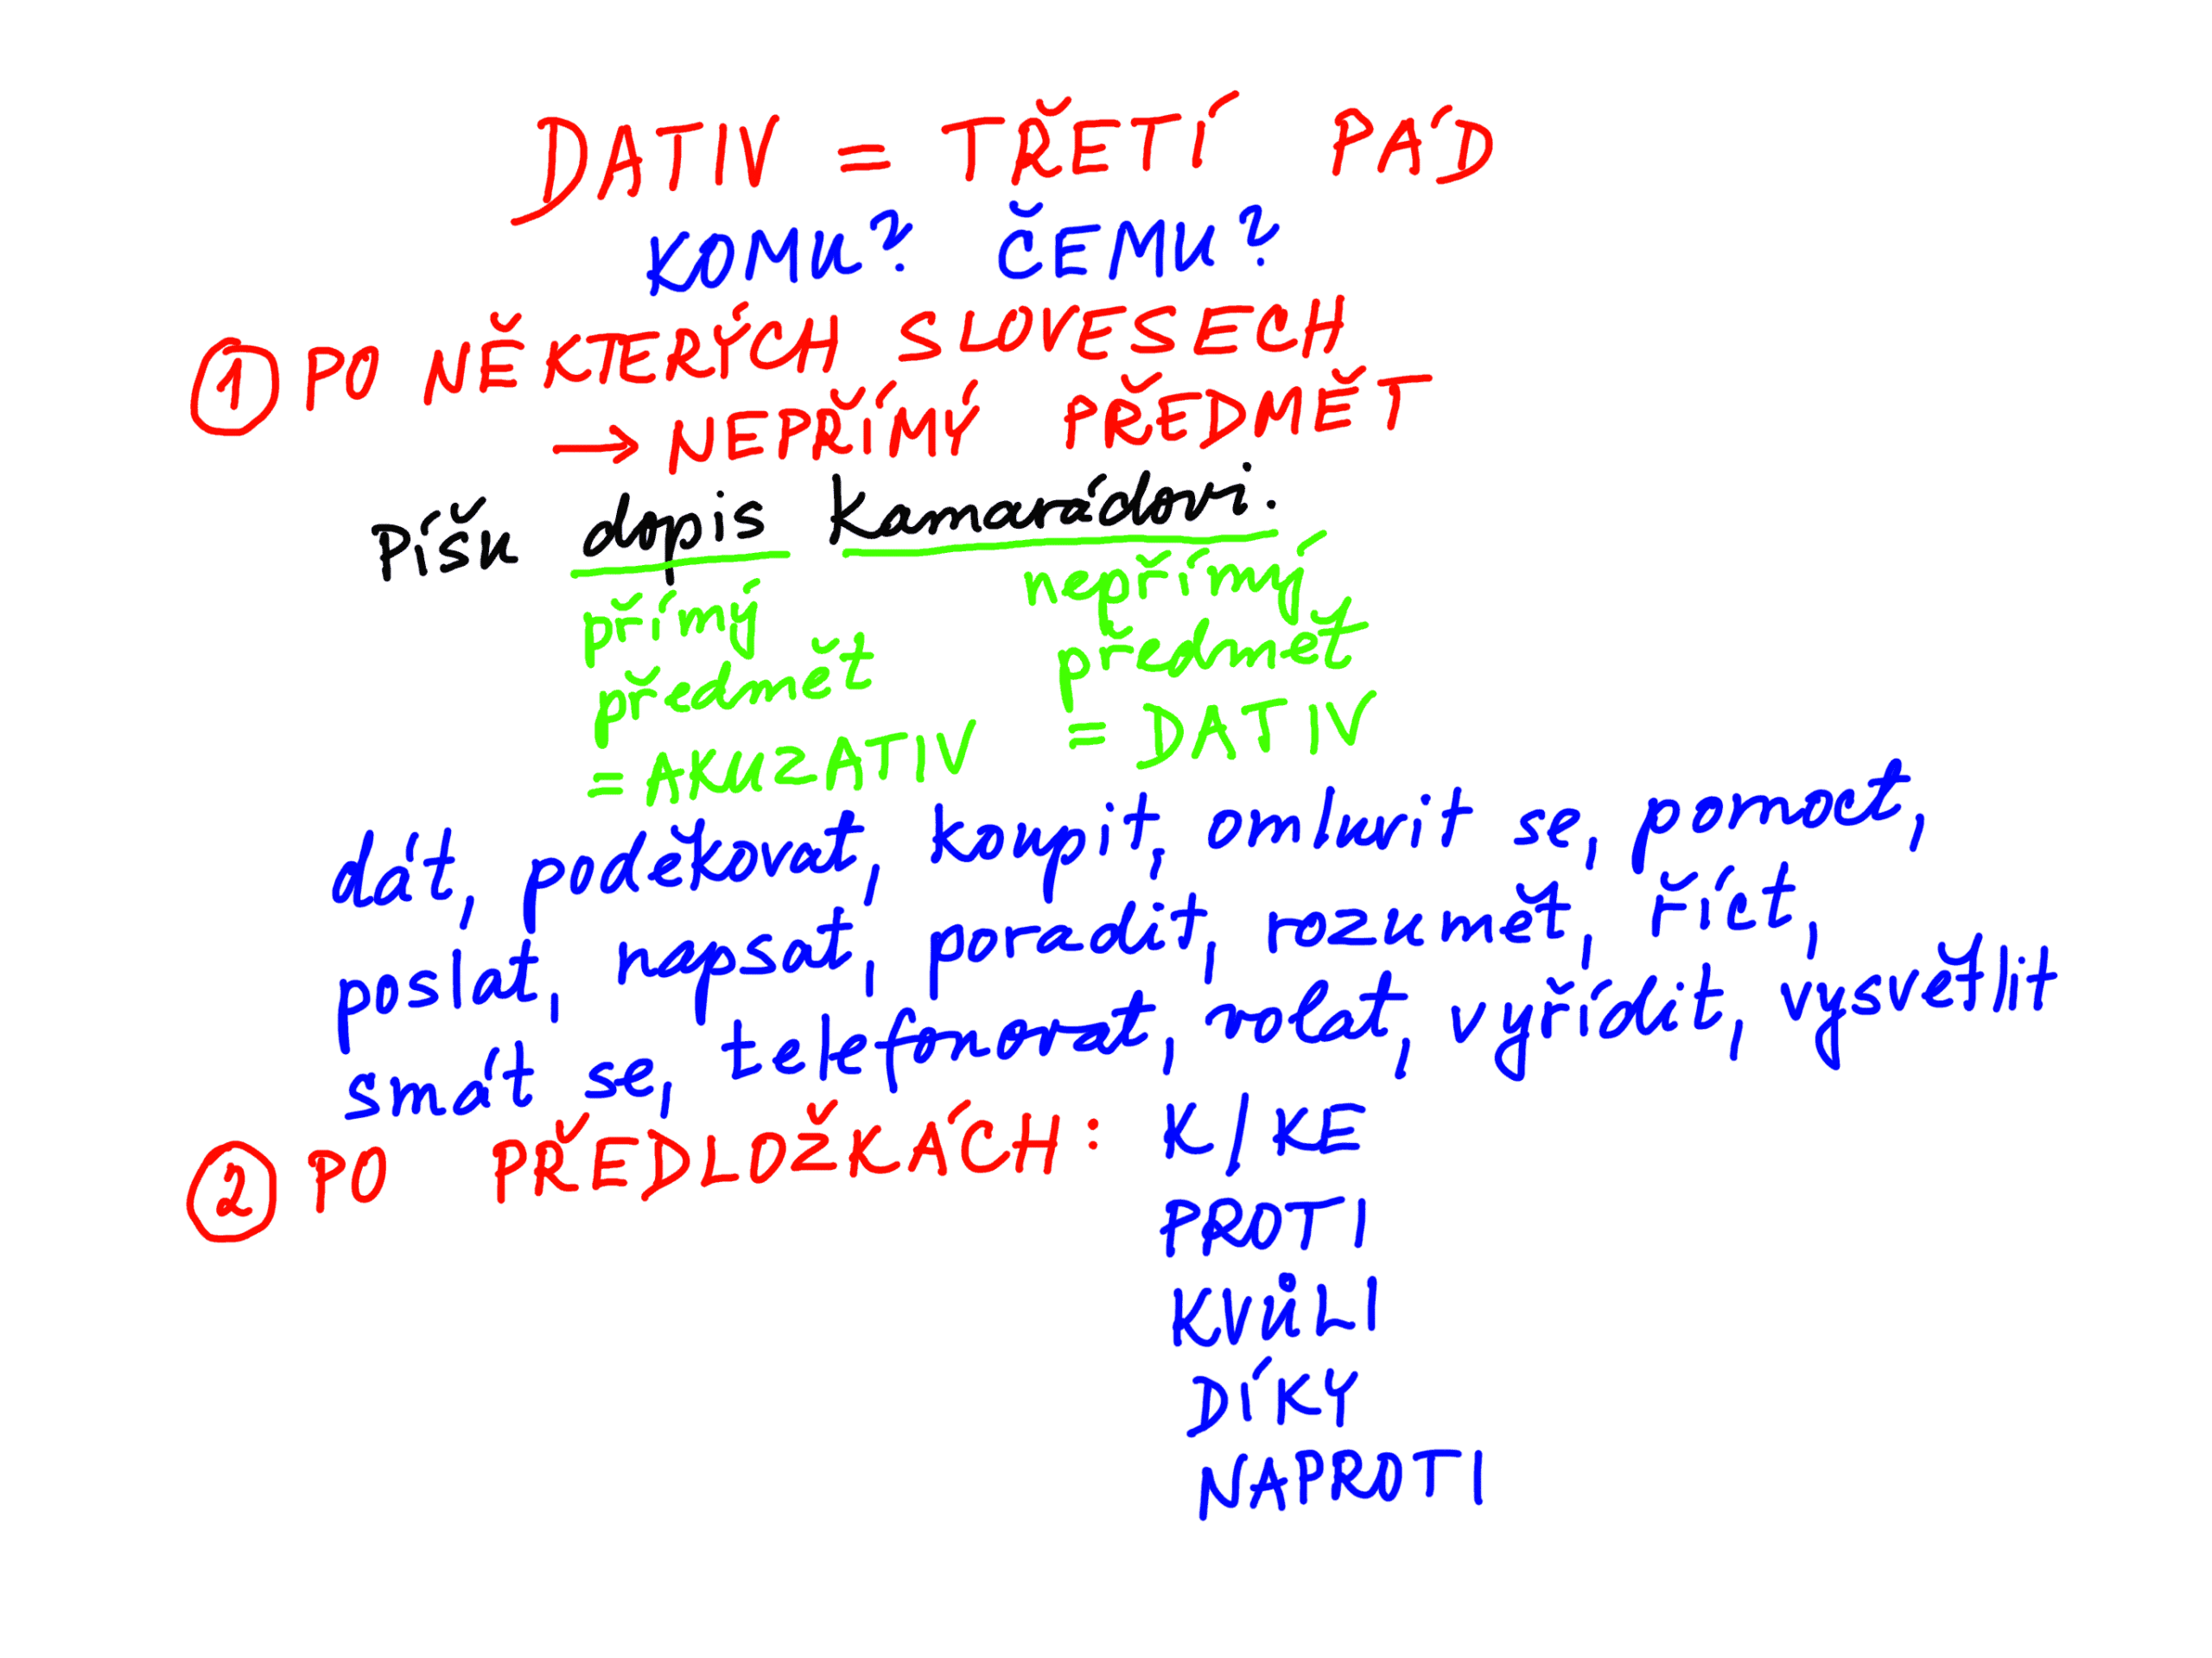 DATIV = TŘETÍ PÁD
KOMU? ČEMU?
1 PO NĚKTERÝCH SLOVESECH
→ NEPŘÍMÝ PŘEDMĚT
Píšu dopis kamarádovi.
přímý předmět = AKUZATIV
nepřímý předmět = DATIV
dát, poděkovat, koupit, omluvit se, pomoct,
poslat, napsat, poradit, rozumět, říct,
smát se, telefonovat, volat, vyřídit, vysvětlit
2 PO PŘEDLOŽKÁCH: K/KE
PROTI
KVŮLI
DÍKY
NAPROTI